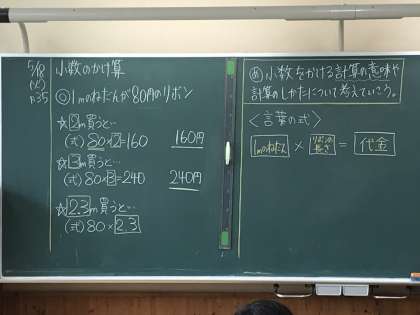 5/18
(火)
P.35
小数のかけ算
◎1mのねだんが80円のリボン
☆2m買うと…
(式)80×2=160 160円
☆3m買うと…
(式)80×3=240 240円
☆2.3m買うと…
(式)80×2.3
め 小数をかける計算の意味や
計算のしかたについて考えていこう。
〈言葉の式〉
1mのねだん × リボンの長さ = 代金